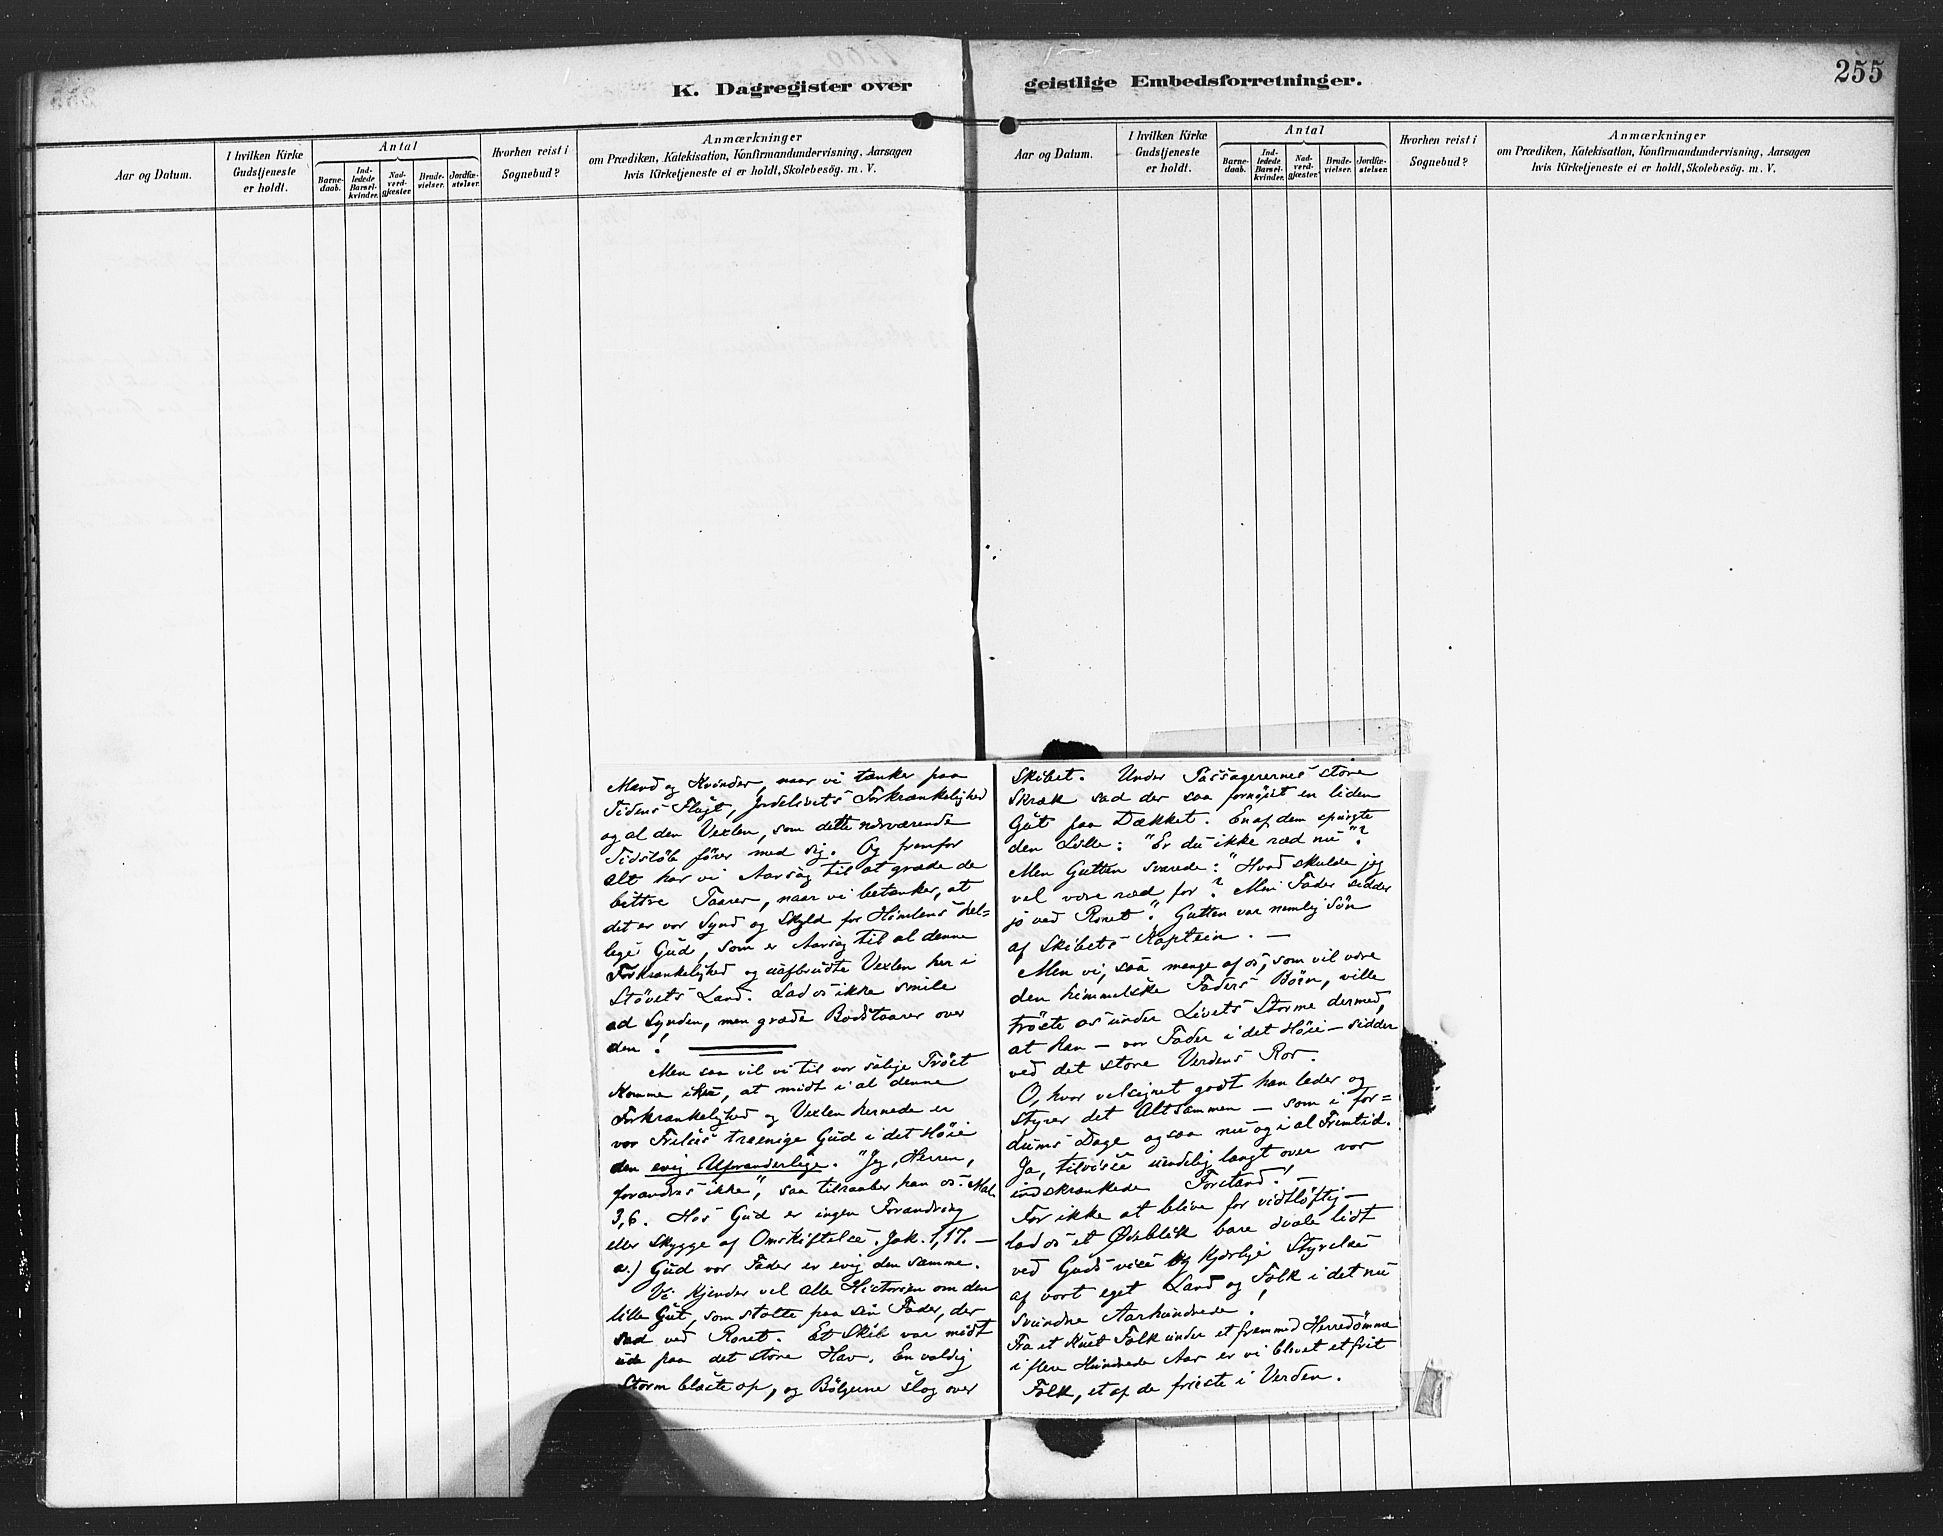 K. Dagregister over
geistlige Embedsforretninger.
255
Aar og Datum.
I hvilken Kirke
Gudstjeneste
er holdt.
Antal
Barne-
daab.
Ind-
ledede
Barsel-
kvinder.
Nad-
verd-
gjæster.
Brude-
vielser.
Jordfæ-
stelser.
Hvorhen reist i
Sognebud?
Anmærkninger
om Prædiken, Katekisation, Konfirmandundervisning, Aarsagen
hvis Kirketjeneste ei er holdt, Skolebesög. m. V.
Aar og Datum.
I hvilken Kirke
Gudstjeneste
er holdt.
Antal
Barne-
daab.
Ind-
ledede
Barsel-
kvinder.
Nad-
verd-
gjæster.
Brude-
vielser.
Jordfæ-
stelser.
Hvorhen reist i
Sognebud?
Anmærkninger
om Prædiken, Katekisation, Konfirmandundervisning, Aarsagen
hvis Kirketjeneste ei er holdt, Skolebesög. m. V.
Mænd og Kvinder, naar vi tænker paa
Tidens Flugt, Jordelivets Forkrænkelighed
og al den Vexlen, som dette nærværende
Tidsløb fører med sig. Og fremfor
alt har vi Aarsag til at græde de
bittre Taarer, naar vi betænker, at
det er vor Synd og Skyld for Himlens hel=
lige Gud, som er Aarsag til al denne
Forkrænkelighed og uafbrudte Vexlen her i
Støvets Land. Lad os ikke smile
ad Synden, men græde Bodstaarer over
den!
Men saa vil vi til vor salige Trøst
komme ihu, at midt i al denne
Forkrænkelighed og Vexlen hernede er
vor Frelses treenige Gud i det Høie
den evig Uforanderlige. "Jeg, Herren,
forandres ikke", saa tilraaber han os. Mal.
3,6. Hos Gud er ingen Forandring
eller Skygge af Omskiftelse. Jak. 1,17. —
a.) Gud vor Fader er evig den samme.
Vi kjender vel alle Historien om den
lille Gut, som stolte paa sin Fader, der
sad ved Roret. Et Skib var midt
ude paa det store Hav. En vældig
Storm blæste op, og Bølgerne slog over
Skibet. Under Passagerernes store
Skræk sad der saa fornøiet en liden
Gut paa Dækket. En af dem spurgte
den Lille: "Er du ikke ræd nu"?
Men Gutten svarede: "Hvad skulde jeg
vel være ræd for? Min Fader sidder
jo ved Roret". Gutten var nemlig Søn
af Skibets Kaptein. —
Men vi, saa mange af os, som vil være
den himmelske Faders Børn, ville
trøste os under Livets Storme dermed,
at Han — vor Fader i det Høie — sidder
ved det store Verdens Ror.
O, hvor velsignet godt han leder og
styrer det Altsammen — som i for=
dums Dage ogsaa nu og i al Fremtid.
Ja, tilvisse uendelig langt over vor
indskrænkede Forstand! —
For ikke at blive for vidtløftig —
lad os et Øieblik bare dvæle lidt
ved Guds vise og kjærlige Styrelse
af vort eget Land og Folk i det nu
svundne Aarhundrede!
Fra et kuet Folk under et fremmed Herredømme
i flere Hundrede Aar er vi blevet et frit
Folk, et af de frieste i Verden.